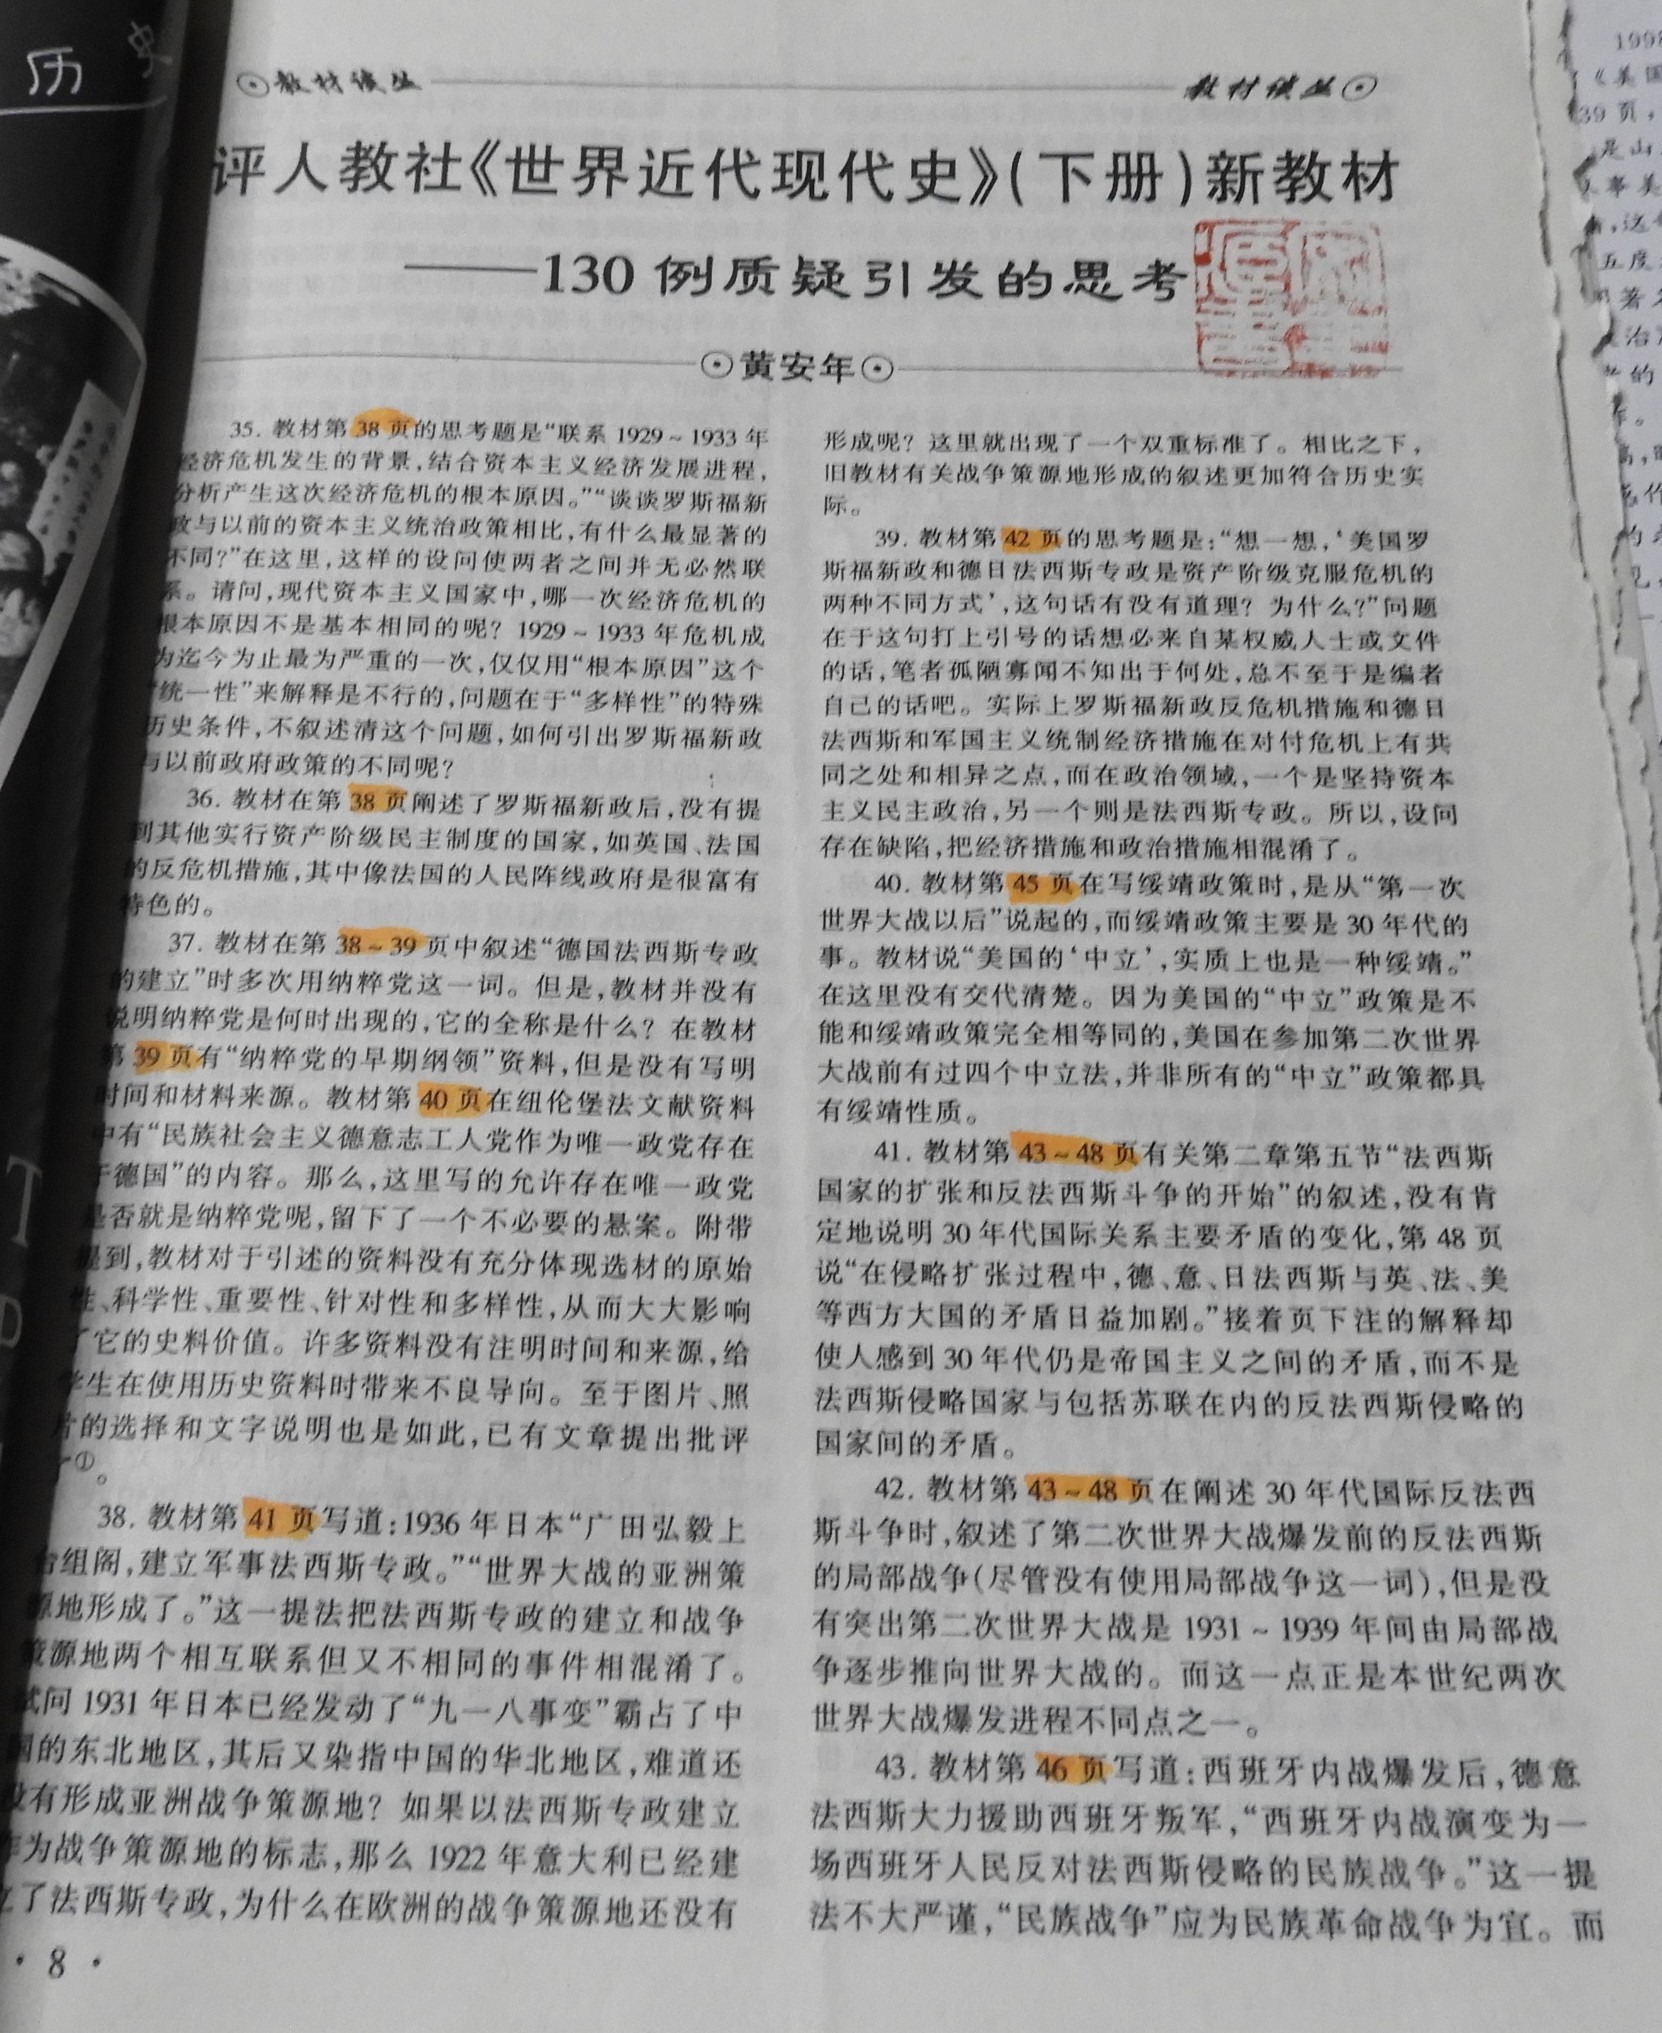 历史
教材谈丛
教材谈丛
评人教社《世界近代现代史》(下册)新教材
——130例质疑引发的思考
黄安年
35. 教材第38页的思考题是“联系1929~1933年
经济危机发生的背景,结合资本主义经济发展进程,
分析产生这次经济危机的根本原因。”“谈谈罗斯福新
政与以前的资本主义统治政策相比,有什么最显著的
不同?”在这里,这样的设问使两者之间并无必然联
系。请问,现代资本主义国家中,哪一次经济危机的
根本原因不是基本相同的呢? 1929~1933年危机成
为迄今为止最为严重的一次,仅仅用“根本原因”这个
“统一性”来解释是不行的,问题在于“多样性”的特殊
历史条件,不叙述清这个问题,如何引出罗斯福新政
与以前政府政策的不同呢?
36. 教材在第38页阐述了罗斯福新政后,没有提
到其他实行资产阶级民主制度的国家,如英国、法国
的反危机措施,其中像法国的人民阵线政府是很富有
特色的。
37. 教材在第38~39页中叙述“德国法西斯专政
的建立”时多次用纳粹党这一词。但是,教材并没有
说明纳粹党是何时出现的,它的全称是什么? 在教材
第39页有“纳粹党的早期纲领”资料,但是没有写明
时间和材料来源。教材第40页在纽伦堡法文献资料
中有“民族社会主义德意志工人党作为唯一政党存在
于德国”的内容。那么,这里写的允许存在唯一政党
是否就是纳粹党呢,留下了一个不必要的悬案。附带
提到,教材对于引述的资料没有充分体现选材的原始
性、科学性、重要性、针对性和多样性,从而大大影响
了它的史料价值。许多资料没有注明时间和来源,给
学生在使用历史资料时带来不良导向。至于图片、照
片的选择和文字说明也是如此,已有文章提出批评
了①。
38. 教材第41页写道:1936年日本“广田弘毅上
台组阁,建立军事法西斯专政。”“世界大战的亚洲策
源地形成了。”这一提法把法西斯专政的建立和战争
策源地两个相互联系但又不相同的事件相混淆了。
试问1931年日本已经发动了“九一八事变”霸占了中
国的东北地区,其后又染指中国的华北地区,难道还
没有形成亚洲战争策源地? 如果以法西斯专政建立
作为战争策源地的标志,那么1922年意大利已经建
立了法西斯专政,为什么在欧洲的战争策源地还没有
·8·
形成呢? 这里就出现了一个双重标准了。相比之下,
旧教材有关战争策源地形成的叙述更加符合历史实
际。
39. 教材第42页的思考题是:“想一想,‘美国罗
斯福新政和德日法西斯专政是资产阶级克服危机的
两种不同方式’,这句话有没有道理? 为什么?”问题
在于这句打上引号的话想必来自某权威人士或文件
的话,笔者孤陋寡闻不知出于何处,总不至于是编者
自己的话吧。实际上罗斯福新政反危机措施和德日
法西斯和军国主义统制经济措施在对付危机上有共
同之处和相异之点,而在政治领域,一个是坚持资本
主义民主政治,另一个则是法西斯专政。所以,设问
存在缺陷,把经济措施和政治措施相混淆了。
40. 教材第45页在写绥靖政策时,是从“第一次
世界大战以后”说起的,而绥靖政策主要是30年代的
事。教材说“美国的‘中立’,实质上也是一种绥靖。”
在这里没有交代清楚。因为美国的“中立”政策是不
能和绥靖政策完全相等同的,美国在参加第二次世界
大战前有过四个中立法,并非所有的“中立”政策都具
有绥靖性质。
41. 教材第43~48页有关第二章第五节“法西斯
国家的扩张和反法西斯斗争的开始”的叙述,没有肯
定地说明30年代国际关系主要矛盾的变化,第48页
说“在侵略扩张过程中,德、意、日法西斯与英、法、美
等西方大国的矛盾日益加剧。”接着页下注的解释却
使人感到30年代仍是帝国主义之间的矛盾,而不是
法西斯侵略国家与包括苏联在内的反法西斯侵略的
国家间的矛盾。
42. 教材第43~48页在阐述30年代国际反法西
斯斗争时,叙述了第二次世界大战爆发前的反法西斯
的局部战争(尽管没有使用局部战争这一词),但是没
有突出第二次世界大战是1931~1939年间由局部战
争逐步推向世界大战的。而这一点正是本世纪两次
世界大战爆发进程不同点之一。
43. 教材第46页写道:西班牙内战爆发后,德意
法西斯大力援助西班牙叛军,“西班牙内战演变为一
场西班牙人民反对法西斯侵略的民族战争。”这一提
法不大严谨,“民族战争”应为民族革命战争为宜。而
《美国
39页,
是山
事美
五度